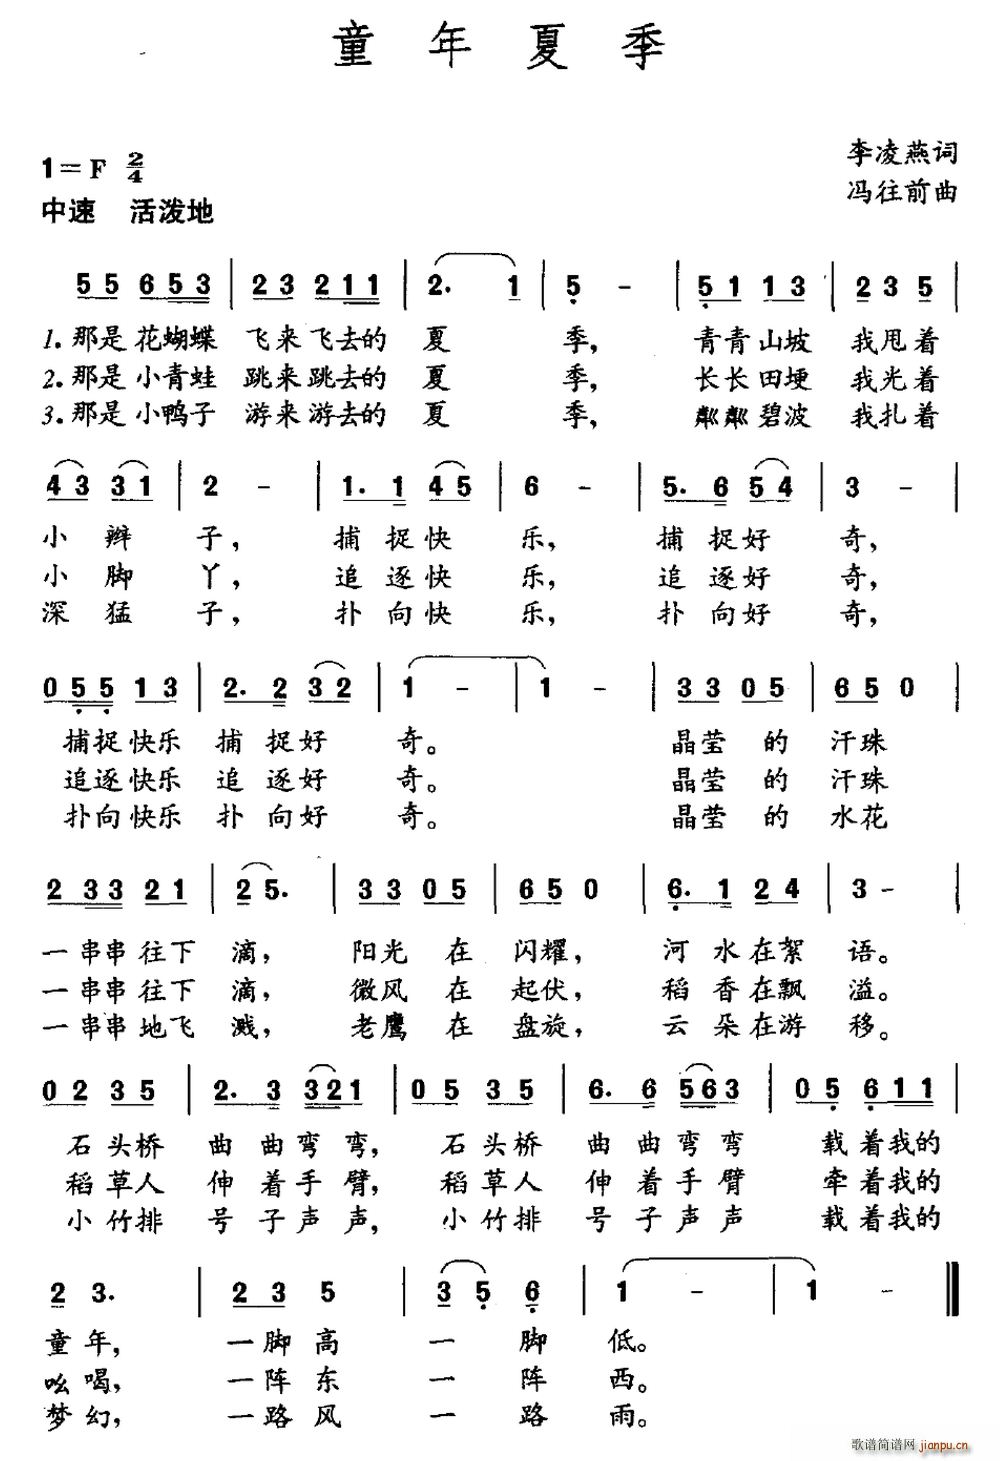 童年夏季
1=F 2/4
李凌燕词
中速 活泼地
冯往前曲
5 5 6 5 3 | 2 3 2 1 1 | 2. 1 | 5 - | 5 1 1 3 | 2 3 5 |
1.那是花蝴蝶 飞来飞去的 夏 季, 青青山坡 我甩着
2.那是小青蛙 跳来跳去的 夏 季, 长长田埂 我光着
3.那是小鸭子 游来游去的 夏 季, 粼粼碧波 我扎着
4 3 3 1 | 2 - | 1. 1 4 5 | 6 - | 5. 6 5 4 | 3 - |
小 辫 子, 捕 捉 快 乐, 捕 捉 好 奇,
小 脚 丫, 追 逐 快 乐, 追 逐 好 奇,
深 猛 子, 扑 向 快 乐, 扑 向 好 奇,
0 5 5 1 3 | 2. 2 3 2 | 1 - | 1 - | 3 3 0 5 | 6 5 0 |
捕捉快乐 捕 捉 好 奇。 晶莹 的 汗珠
追逐快乐 追 逐 好 奇。 晶莹 的 汗珠
扑向快乐 扑 向 好 奇。 晶莹 的 水花
2 3 3 2 1 | 2 5. | 3 3 0 5 | 6 5 0 | 6. 1 2 4 | 3 - |
一串串往下 滴, 阳光 在 闪耀, 河 水在絮 语。
一串串往下 滴, 微风 在 起伏, 稻 香在飘 溢。
一串串地飞 溅, 老鹰 在 盘旋, 云 朵在游 移。
0 2 3 5 | 2. 3 3 2 1 | 0 5 3 5 | 6. 6 5 6 3 | 0 5 6 1 1 |
石头桥 曲 曲弯 弯, 石头桥 曲 曲弯 弯 载 着我的
稻草人 伸 着手 臂, 稻草人 伸 着手 臂 牵 着我的
小竹排 号 子声 声, 小竹排 号 子声 声 载 着我的
2 3. | 2 3 5 | 3 5 6 | 1 - | 1 - ‖
童 年, 一脚 高 一 脚 低。
吆 喝, 一阵 东 一 阵 西。
梦 幻, 一路 风 一 路 雨。
歌谱简谱网 jianpu.cn